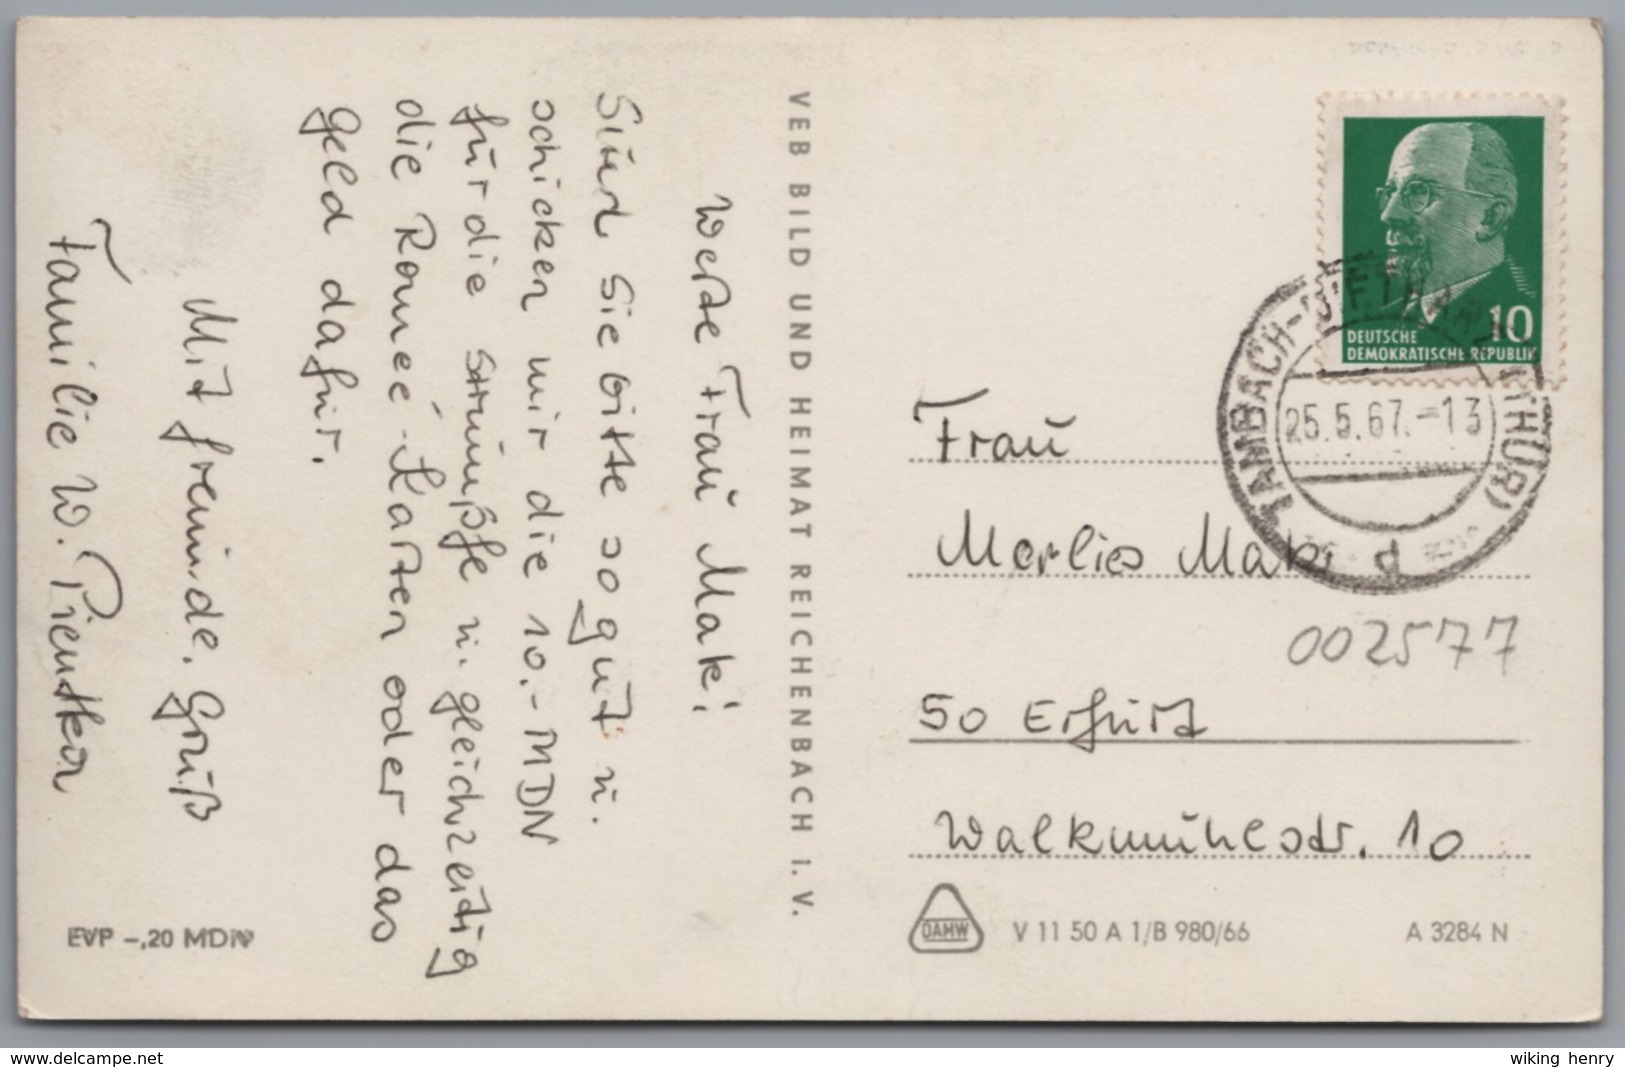 Werte Frau Maki
Sind Sie bitte so gut u.
schicken mir die 10.- MDN
für die Strümpfe u. gleichzeitig
die Romeé-Karten oder das
Geld dafür.
Mit freundl. Gruß
Familie W.
VEB BILD UND HEIMAT REICHENBACH I. V.
DEUTSCHE
DEMOKRATISCHE REPUBLIK
10
TAMBACH-DIETHARZ (THÜR)
25.5.67.-13
Frau
Marlies Maki
002577
50 Erfurt
Walkmühlstr. 10
EVP -,20 MDN
DAMW
V 11 50 A 1/B 980/66
A 3284 N
www.delcampe.net
wiking henry